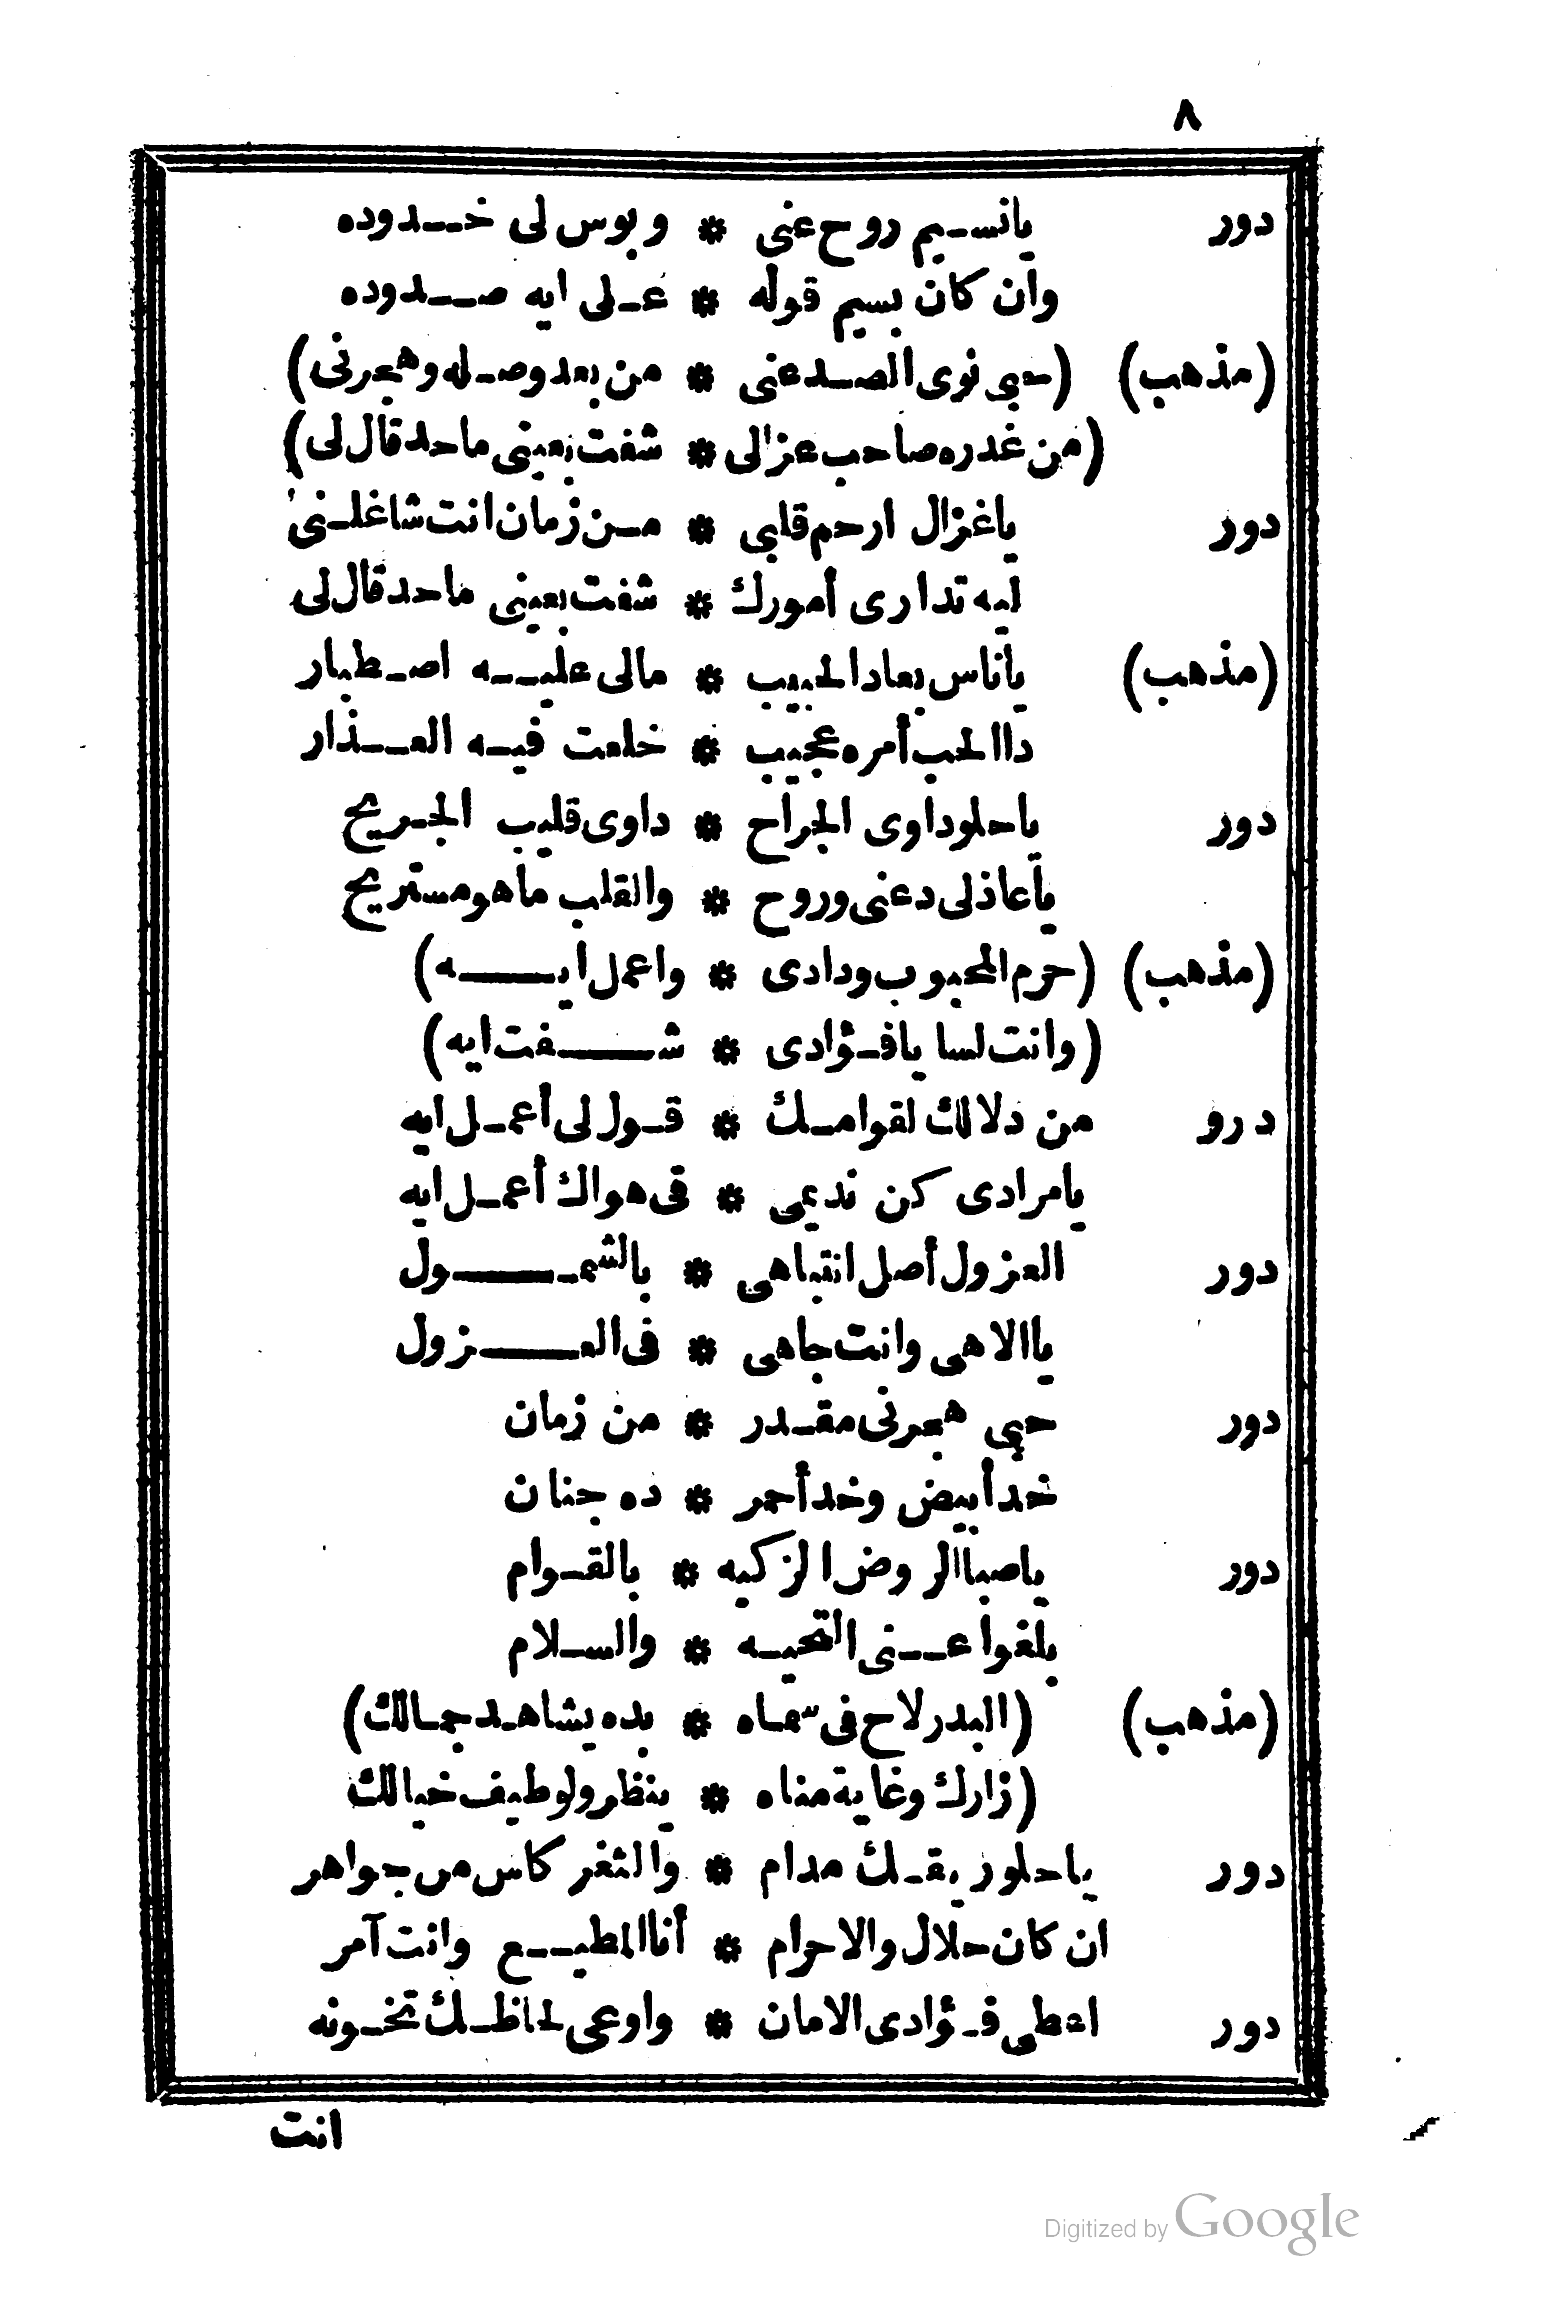 ٨
دور يانسيم روح عنى * وبوس لى خدوده
وان كان بسيم قوله * على ايه صدوده
(مذهب) (حبى نوى الصدعنى * من بعد وصله وهجرنى)
(من غدره صاحب عزالى * شفت بعينى ماحد قال لى)
دور ياغزال ارحم قلبى * من زمان انت شاغلنى
ليه تدارى أمورك * شفت بعينى ماحد قال لى
(مذهب) ياناس بعاد الحبيب * مالى عليه اصطبار
دا الحب أمره عجيب * خلعت فيه العذار
دور ياحلو داوى الجراح * داوى قليب الجريح
ياعاذلى دعنى وروح * والقلب ماهو مستريح
(مذهب) (حرم المحبوب ودادى * واعمل ايه)
(وانت لسا يافؤادى * شفت ايه)
درو من دلالك لقوامك * قول لى أعمل ايه
يامرادى كن نديمى * فى هواك أعمل ايه
دور العزول أصل انتباهى * بالشمول
ياالاهى وانت جاهى * فى العزول
دور حبى هجرنى مقدر * من زمان
خد أبيض وخد أحمر * ده جنان
دور ياصبا الروض الزكيه * بالقوام
بلغوا عنى التحيه * والسلام
(مذهب) (البدر لاح فى سماه * بده يشاهد جمالك)
(زارك وغاية مناه * ينظر ولو طيف خيالك
دور ياحلو ريقك مدام * والثغر كاس من جواهر
ان كان حلال والاحرام * أنا المطيع وانت آمر
دور اعطى فؤادى الامان * واوعى لحاظك تخونه
انت
Digitized by Google